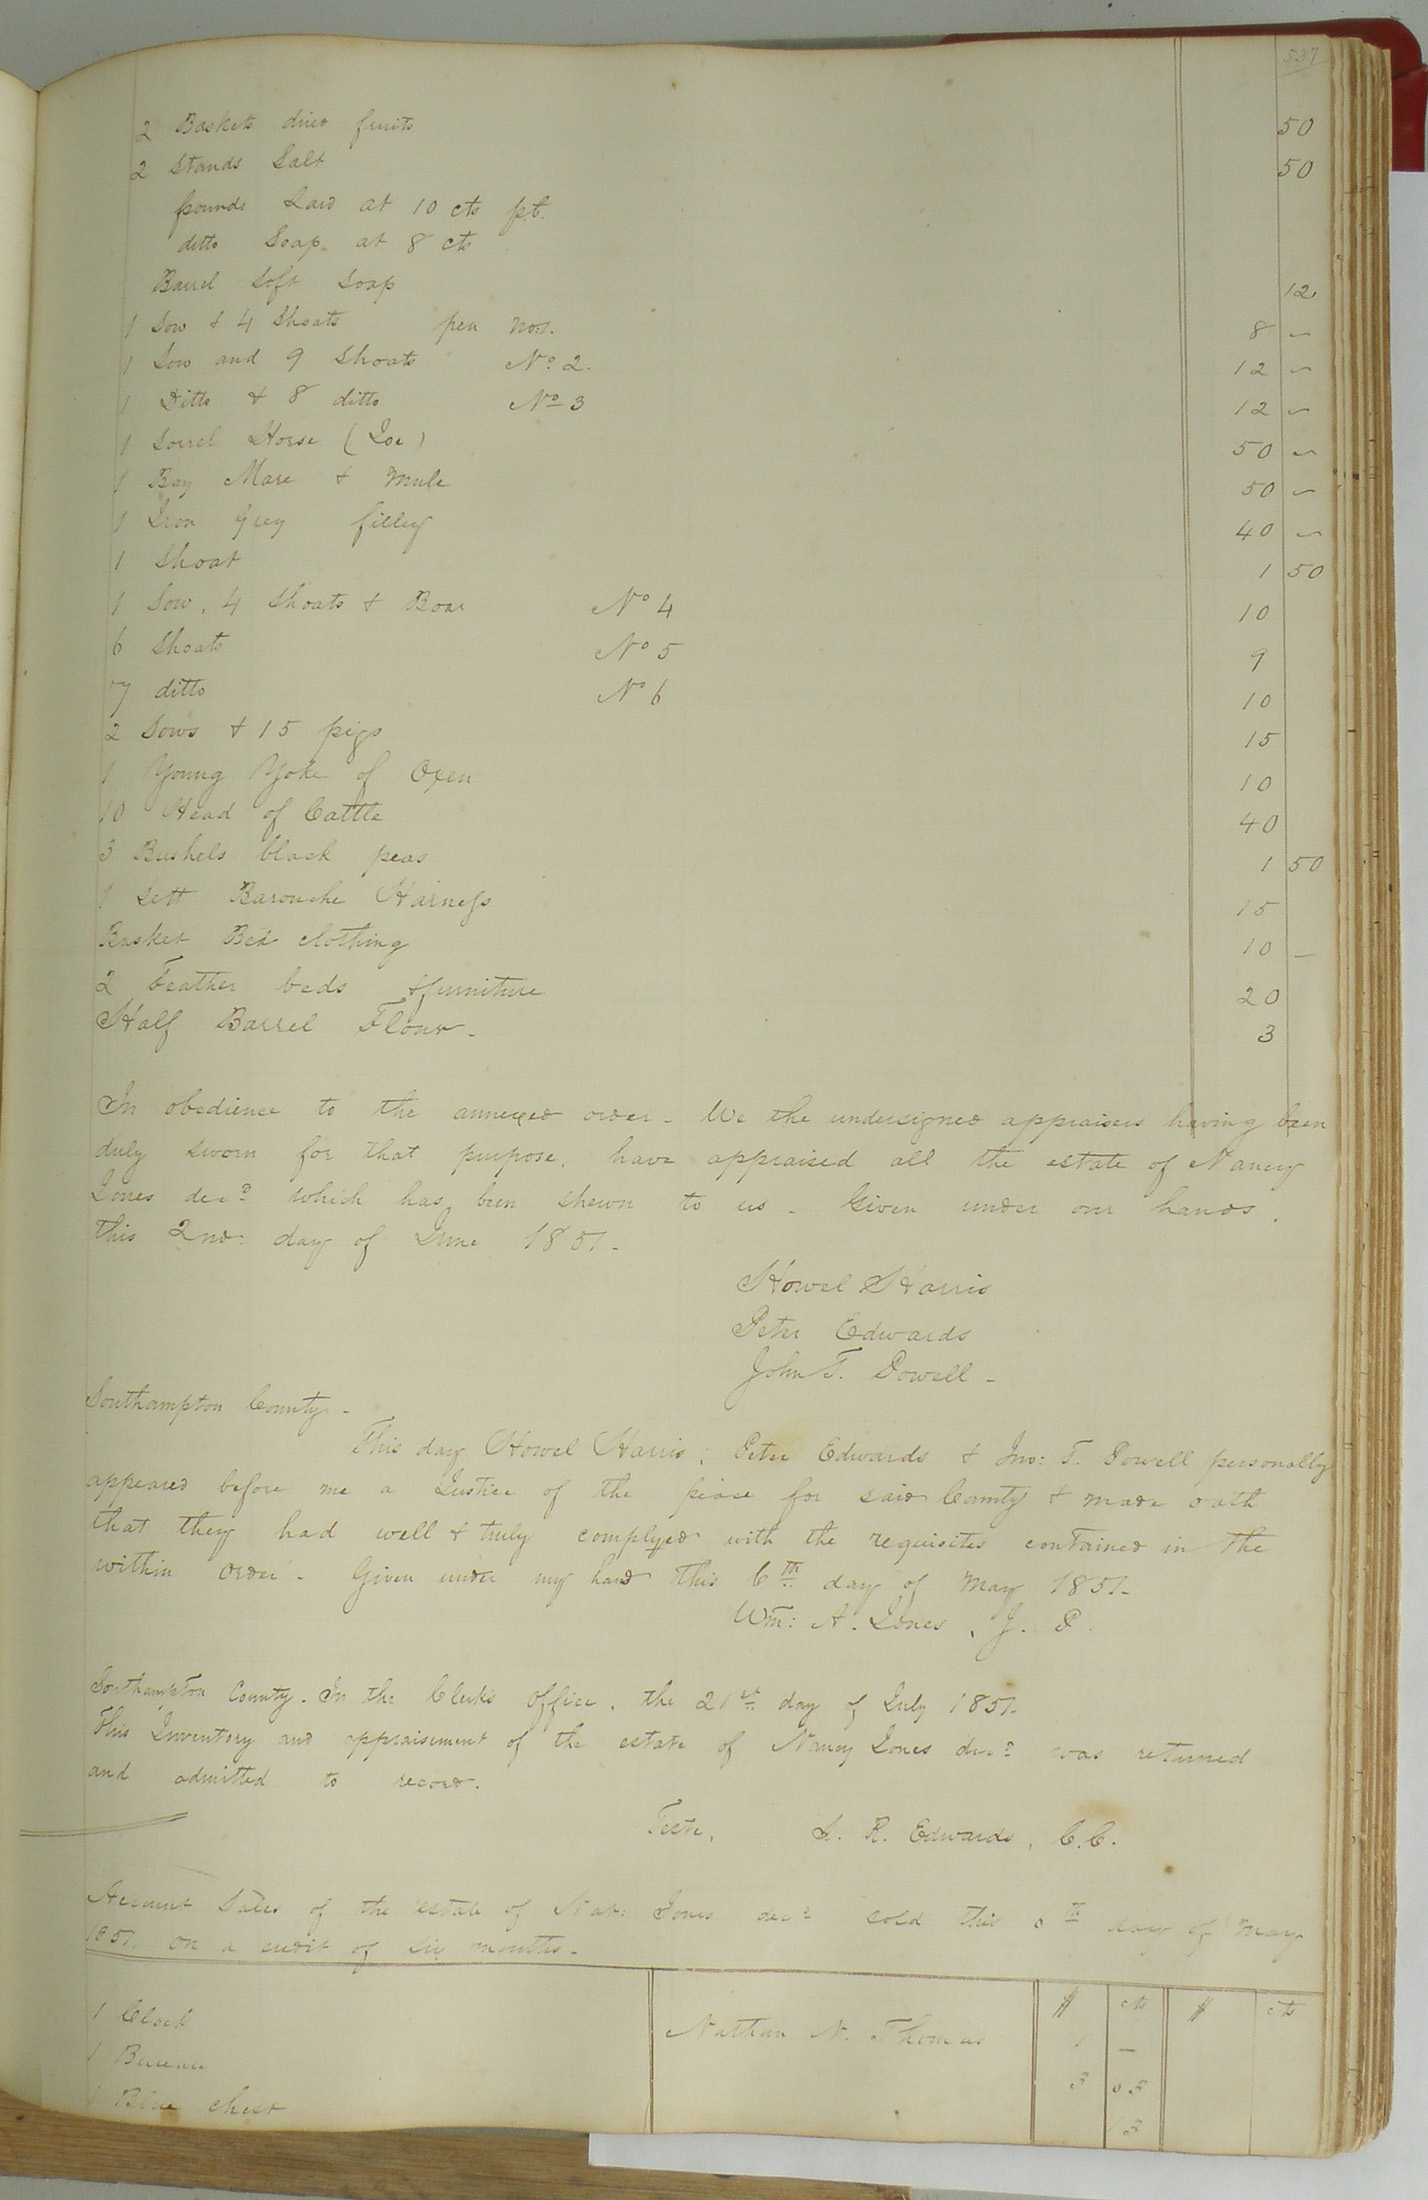 537
2 Baskets dried fruits 50
2 Stands Salt 50
pounds Lard at 10 cts pt.
ditto Soap at 8 cts
Barrel Soft Soap 12
1 Sow & 4 Shoats pen No 1. 8 -
1 Sow and 9 Shoats No 2. 12 -
1 Ditto & 8 ditto No 3 12 -
1 Sorrel Horse (Joe) 50 -
1 Bay Mare & Mule 50 -
1 Iron Grey filley 40 -
1 Shoat 1 50
1 Sow, 4 Shoats & Boar No 4 10
6 Shoats No 5 9
7 ditto No 6 10
2 Sows & 15 pigs 15
1 Young Yoke of Oxen 10
10 Head of Cattle 40
3 Bushels black peas 1 50
1 Sett Barouche Harness 15
Basket Bed clothing 10 -
2 Feather beds & furniture 20
Half Barrel Flour - 3
In obedience to the annexed order - We the undersigned appraisers having been
duly sworn for that purpose, have appraised all the estate of Nancy
Jones decd which has been shewn to us - Given under our hands.
this 2nd day of June 1851 -
Howel Harris
Peter Edwards
John T. Powell -
Southampton County -
This day Howel Harris, Peter Edwards & Jno: T. Powell personally
appeared before me a Justice of the peace for said County & made oath
that they had well & truly complyed with the requisites contained in the
within order - Given under my hand this 6th day of May 1851 -
Wm: A. Jones, J. P.
Southampton County. In the Clerk's office, the 21st day of July 1851 -
This Inventory and appraisement of the estate of Nancy Jones decd was returned
and admitted to record.
Teste, L. R. Edwards, C.C.
Account Sales of the estate of Nat: Jones decd sold this 6th day of May
1851 on a credit of six months -
$ cts $ cts
1 Clock Nathan N. Thomas 1 -
1 Bureau 3 05
1 Blue chest 13